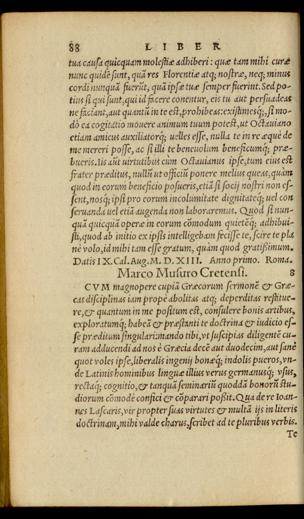 88 LIBER
tua causa quicquam molestiæ adhiberi: quæ tam mihi curæ
nunc quidẽ sunt, quã res Florentiæ atq; nostræ, neq; minus
cordi nunquã fuerũt, quã ipsæ tuæ semper fuerint. Sed po-
tius si qui sunt, qui id facere conentur, eis tu aut persuadeas
ne faciant, aut quantũ in te est, prohibeas: existimesq;, si mo-
dò ea cogitatio mouere animum tuum potest, ut Octauiano
etiam amicus auxiliatorq; uelles esse, nulla te in re æquè de
me mereri posse, ac si illi te beneuolum beneficumq; præ-
bueris. Iis aut uirtutibus cum Octauianus ipse, tum eius est
frater præditus, nullũ ut officiũ ponere melius queas, quàm
quod in eorum beneficio posueris, etiã si socij nostri non es-
sent, nosq; ipsi pro eorum incolumitate dignitateq; uel con
seruanda uel etiã augenda non laboraremus. Quod si nun-
quã quicquã operæ in eorum cõmodum quietẽq; adhibui-
sti, quod ab initio ex ipsis intelligebam fecisse te, scire te pla
nè volo, id mihi tam esse gratum, quàm quod gratissimum.
Datis IX. Cal. Aug. M. D. XIII. Anno primo. Roma.
Marco Musuro Cretensi. 8
CVM magnopere cupiã Græcorum sermonẽ & Græ-
cas disciplinas iam propè abolitas atq; deperditas restitue-
re, & quantum in me positum est, consulere bonis artibus,
exploratumq; habeã & præstanti te doctrina & iudicio es-
se præditum singulari: mando tibi, vt suscipias diligentẽ cu-
ram adducendi ad nos è Græcia decẽ aut duodecim, aut sanè
quot voles ipse, liberalis ingenij bonæq; indolis pueros, vn-
de Latinis hominibus linguæ illius verus germanusq; vsus,
rectaq; cognitio, & tanquã seminariũ quoddã bonorũ stu-
diorum cõmodè confici & cõparari possit. Qua de re Ioan-
nes Lascaris, vir propter suas virtutes & multã ijs in literis
doctrinam, mihi valde charus, scribet ad te pluribus verbis.
Te